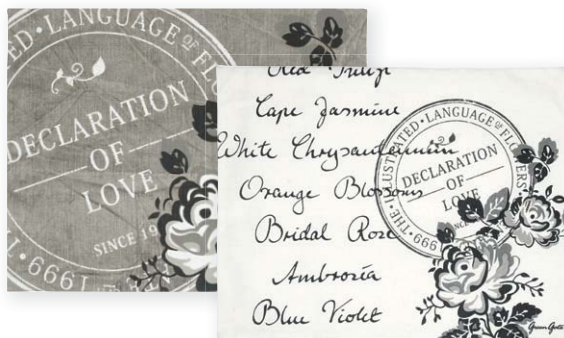 ED · LANGUAGE OF FLOWERS
DECLARATION
OF
LOVE
SINCE 19
1999 · T
Red Tulip
Cape Jasmine
White Chrysanthemum
Orange Blossoms
Bridal Rose
Ambrosia
Blue Violet
THE · ILLUSTRATED · LANGUAGE OF FLOWERS
DECLARATION
OF
LOVE
1999
GreenGate